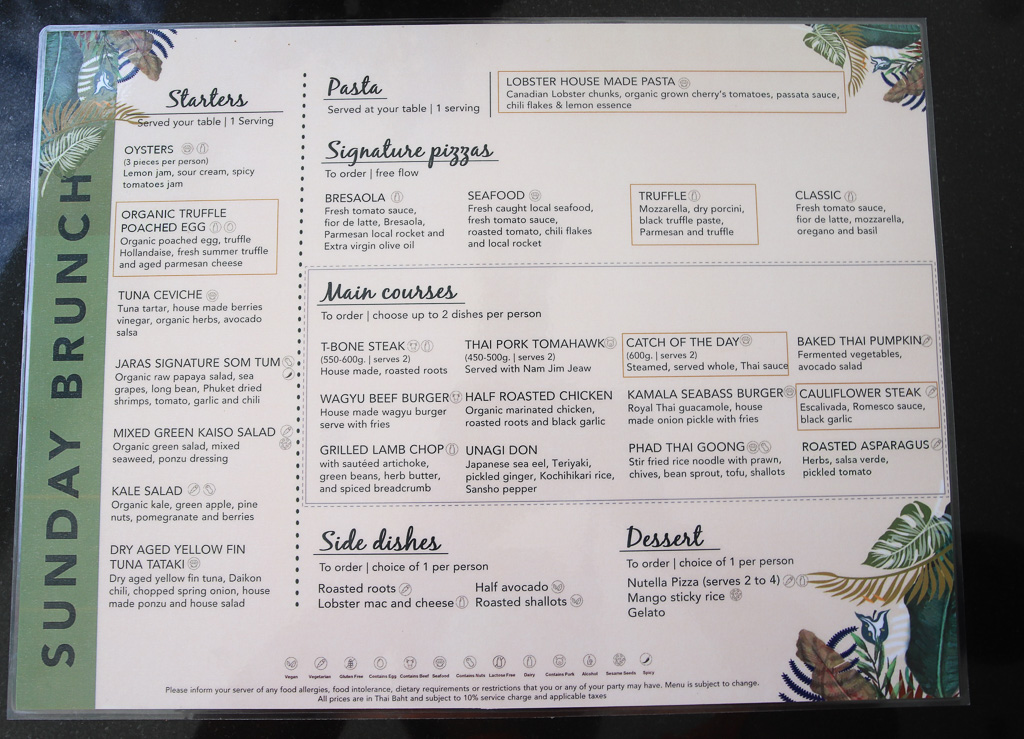 SUNDAY BRUNCH
Starters
Served your table | 1 Serving
OYSTERS
(3 pieces per person)
Lemon jam, sour cream, spicy
tomatoes jam
ORGANIC TRUFFLE
POACHED EGG
Organic poached egg, truffle
Hollandaise, fresh summer truffle
and aged parmesan cheese
TUNA CEVICHE
Tuna tartar, house made berries
vinegar, organic herbs, avocado
salsa
JARAS SIGNATURE SOM TUM
Organic raw papaya salad, sea
grapes, long bean, Phuket dried
shrimps, tomato, garlic and chili
MIXED GREEN KAISO SALAD
Organic green salad, mixed
seaweed, ponzu dressing
KALE SALAD
Organic kale, green apple, pine
nuts, pomegranate and berries
DRY AGED YELLOW FIN
TUNA TATAKI
Dry aged yellow fin tuna, Daikon
chili, chopped spring onion, house
made ponzu and house salad
Pasta
Served at your table | 1 serving
LOBSTER HOUSE MADE PASTA
Canadian Lobster chunks, organic grown cherry's tomatoes, passata sauce,
chili flakes & lemon essence
Signature pizzas
To order | free flow
BRESAOLA
Fresh tomato sauce,
fior de latte, Bresaola,
Parmesan local rocket and
Extra virgin olive oil
SEAFOOD
Fresh caught local seafood,
fresh tomato sauce,
roasted tomato, chili flakes
and local rocket
TRUFFLE
Mozzarella, dry porcini,
black truffle paste,
Parmesan and truffle
CLASSIC
Fresh tomato sauce,
fior de latte, mozzarella,
oregano and basil
Main courses
To order | choose up to 2 dishes per person
T-BONE STEAK
(550-600g. | serves 2)
House made, roasted roots
THAI PORK TOMAHAWK
(450-500g. | serves 2)
Served with Nam Jim Jeaw
CATCH OF THE DAY
(600g. | serves 2)
Steamed, served whole, Thai sauce
BAKED THAI PUMPKIN
Fermented vegetables,
avocado salad
WAGYU BEEF BURGER
House made wagyu burger
serve with fries
HALF ROASTED CHICKEN
Organic marinated chicken,
roasted roots and black garlic
KAMALA SEABASS BURGER
Royal Thai guacamole, house
made onion pickle with fries
CAULIFLOWER STEAK
Escalivada, Romesco sauce,
black garlic
GRILLED LAMB CHOP
with sautéed artichoke,
green beans, herb butter,
and spiced breadcrumb
UNAGI DON
Japanese sea eel, Teriyaki,
pickled ginger, Kochihikari rice,
Sansho pepper
PHAD THAI GOONG
Stir fried rice noodle with prawn,
chives, bean sprout, tofu, shallots
ROASTED ASPARAGUS
Herbs, salsa verde,
pickled tomato
Side dishes
To order | choice of 1 per person
Roasted roots
Lobster mac and cheese
Half avocado
Roasted shallots
Dessert
To order | choice of 1 per person
Nutella Pizza (serves 2 to 4)
Mango sticky rice
Gelato
Vegan Vegetarian Gluten Free Contains Egg Contains Beef Seafood Contains Nuts Lactose Free Dairy Contains Pork Alcohol Sesame Seeds Spicy
Please inform your server of any food allergies, food intolerance, dietary requirements or restrictions that you or any of your party may have. Menu is subject to change.
All prices are in Thai Baht and subject to 10% service charge and applicable taxes